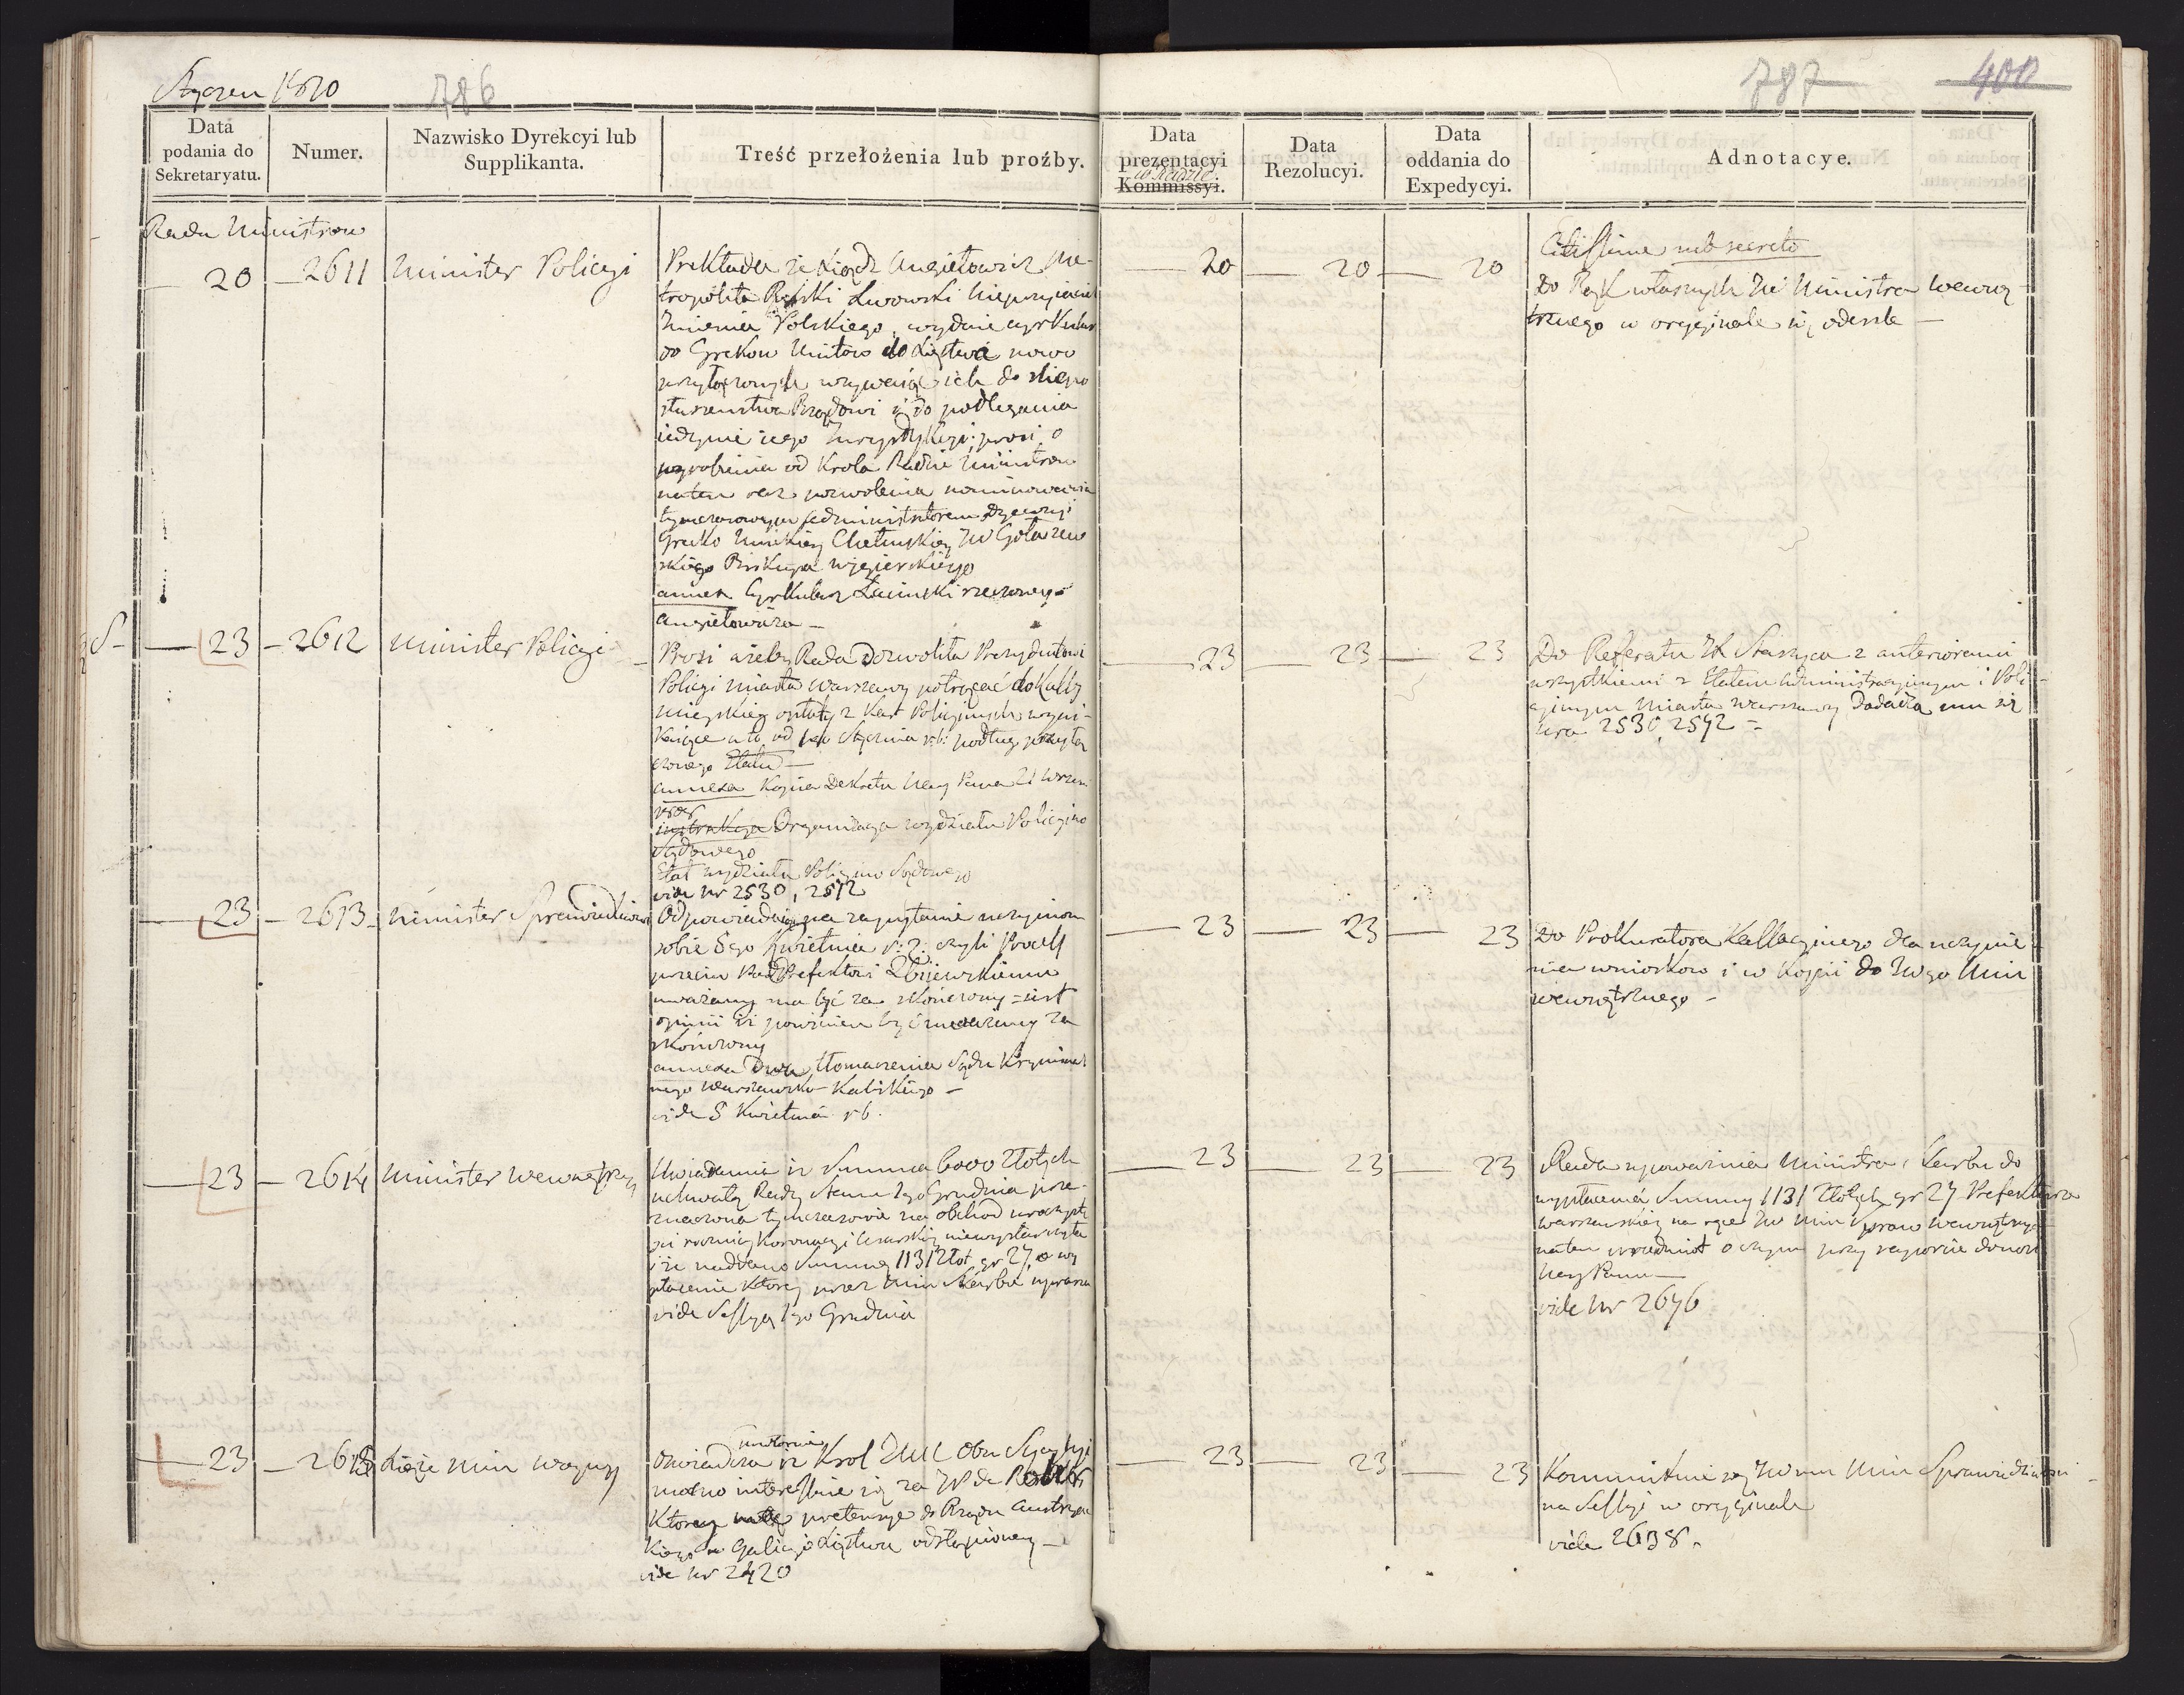 Styczen 1810
786
787
400
Data
podania do
Sekretaryatu.
Numer.
Nazwisko Dyrekcyi lub
Supplikanta.
Treść przełożenia lub proźby.
Data
prezentacyi
w Radzie
Kommissyi.
Data
Rezolucyi.
Data
oddania do
Expedycyi.
Adnotacye.
Rada Ministrow
20 2611 Minister Policyi
Przekłada że Xiądz Angiełowicz Me-
tropolita Ruski Lwowski Nieprzyiaciel
Imienia Polskiego, wydaie cyrkularz
do Grekow Unitow do Xięstwa nowo
przyłączonych wzywaiąc ich do niepo
słuszenstwa Rządowi i do podlegania
iedynie iego Juryzdykcyi; prosi o
wyrobienie od Krola Radzie Ministrow
na ten raz pozwolenia nominowania
tymczasowym Administratorem Dyecezyi
Grecko Unickiey Chełmskiey JW Gołaszew
skiego Biskupa wygierskiego
annex Cyrkularz Łacinski rzeczonego
Angiełowicza —
20 20 20
Citissime sub secreto
Do Rąk własnych JW Ministra Wewnę
trznego w oryginale się odeszle —
S - 23 - 2612 Minister Policyi
Prosi ażeby Rada dozwoliła Prezydentowi
Policyi miasta Warszawy potrącać do Kassy
mieyskiey opłaty z Kart Policyinych wyni-
kaiące a to od 1go Stycznia r: b: podług przyłą
czonego Etatu —
annexa Kopia Dekretu Nay Pana 21 Wrzes
1808
instrukcya Organizacya wydziału Policyino
Sądowego
Etat wydziału Policyino Sądowego
vide Nr 2530, 2592
23 23 23
Do Referatu JW Staszyca z anterioreami
wszystkiemi z Etatem administracyinym i Poli-
cyinym Miasta Warszawy Dodadzą mu się
nra 2530, 2592 =
23 - 2613 - Minister Sprawiedliwosci
Odpowiadaiąc na zapytanie uczynione
sobie 5go Kwietnia r: z: czyli Process
przeciw Podprefektowi Zbijewskiemu
uważany ma być za skończony = iest
opinii iż powinien być uważany za
skończony
annexa Dwa tłomaczenia Sądu Kryminal
nego Warszawsko Kaliskiego —
vide 5 Kwietnia r b.
23 23 23
Do Prokuratora Kassacyinego dla uczynie
nia wniosków i w kopii do JWgo Min
wewnętrznego —
23 - 2614 Minister Wewnętrzny
Uwiadamia iż Summa 6000 Złotych
uchwałą Rady Stanu 1go Grudnia prze-
znaczona tymczasowie na obchod uroczysto
ści rocznicy Koronacyi Cesarskiey niewystarczyła
i że naddano Summę 1131 Złot. gr 27, o wy
płacenie ktorey przez Min Skarbu uprasza
vide Sessya 1go Grudnia
23 23 23
Rada upoważnia Ministra Skarbu do
wypłacenia Summy 1131 Złotych gr 27 Prefekturze
Warszawskiey na ręce JW Min Spraw Wewnętrznych
na ten przedmiot o czym przy raporcie donosi
Nay Panu —
vide Nr 2646
23 - 2615 Xiąże Min Woyny
Oswiadcza iż Krol JMc Obu Sycylyi
mocno interessuie się za JP de
Ktorey pretensye do Rządu Austryac
kiego w Galicyi Xięstwu odstąpioney —
vide Nr 2420
23 23 23
Kommunikuie się JWmu Min Sprawiedliwosci
na Sessyi w oryginale
vide 2638.